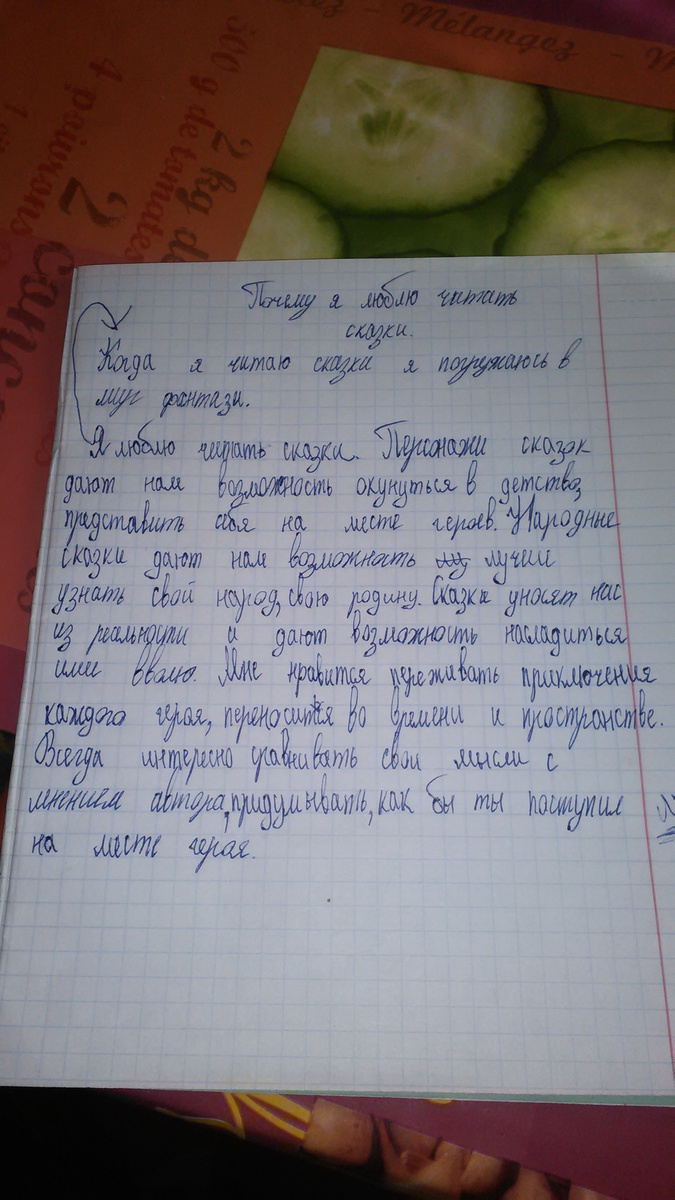 Mélangez
500 g de tomates
4 poivrons
2 kg de
2
Почему я люблю читать
сказки.
Когда я читаю сказки я погружаюсь в
мир фантази.
Я люблю читать сказки. Персонажи сказок
дают нам возможность окунуться в детство,
представить себя на месте героев. Народные
сказки дают нам возможность лучше
узнать свой народ, свою родину. Сказки уносят нас
из реальности и дают возможность насладиться
ими вволю. Мне нравится переживать приключения
каждого героя, переносится во времени и пространстве.
Всегда интересно сравнивать свои мысли с
мнением автора, придумывать, как бы ты поступил
на месте героя.